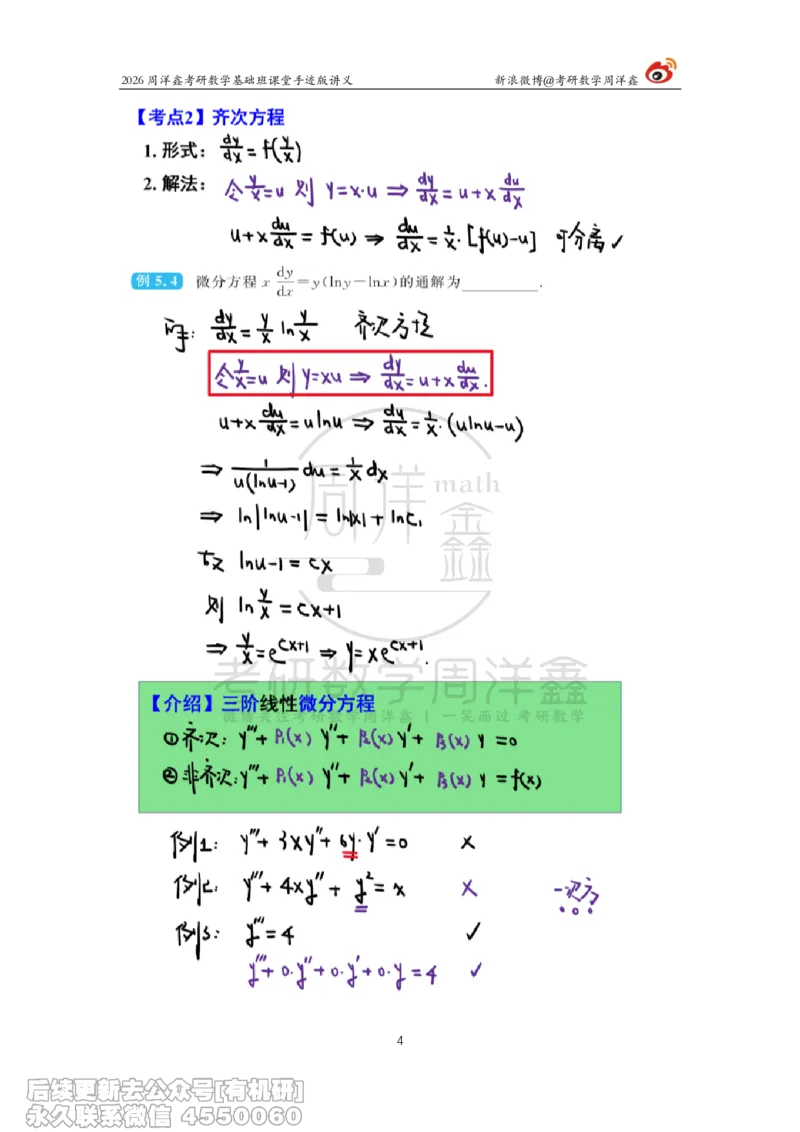 2026 周洋鑫考研数学基础班课堂手迹版讲义 新浪微博@考研数学周洋鑫
【考点2】齐次方程
1. 形式： dy/dx = f(y/x)
2. 解法： 令 y/x = u 则 y = x·u ⇒ dy/dx = u + x du/dx
u + x du/dx = f(u) ⇒ du/dx = 1/x · [f(u) - u] 可分离 ✓
例 5.4 微分方程 x dy/dx = y(ln y - ln x) 的通解为________.
解: dy/dx = y/x ln y/x 齐次方程
令 y/x = u 则 y = xu ⇒ dy/dx = u + x du/dx.
u + x du/dx = u ln u ⇒ du/dx = 1/x · (u ln u - u)
⇒ 1/(u(ln u - 1)) du = 1/x dx
⇒ ln|ln u - 1| = ln|x| + ln C₁
故 ln u - 1 = Cx
则 ln y/x = Cx + 1
⇒ y/x = e^(Cx+1) ⇒ y = x e^(Cx+1).
周洋鑫 math
考研数学周洋鑫
微博关注考研数学周洋鑫 | 一笑而过 考研数学
【介绍】三阶线性微分方程
① 齐次: y''' + P₁(x) y'' + P₂(x) y' + P₃(x) y = 0
② 非齐次: y''' + P₁(x) y'' + P₂(x) y' + P₃(x) y = f(x)
例1: y''' + 3xy'' + 6y·y' = 0 ×
例2: y''' + 4xy'' + y² = x × 一次方
例3: y''' = 4 ✓
y''' + 0·y'' + 0·y' + 0·y = 4 ✓
4
后续更新去公众号[有机研]
永久联系微信 4550060